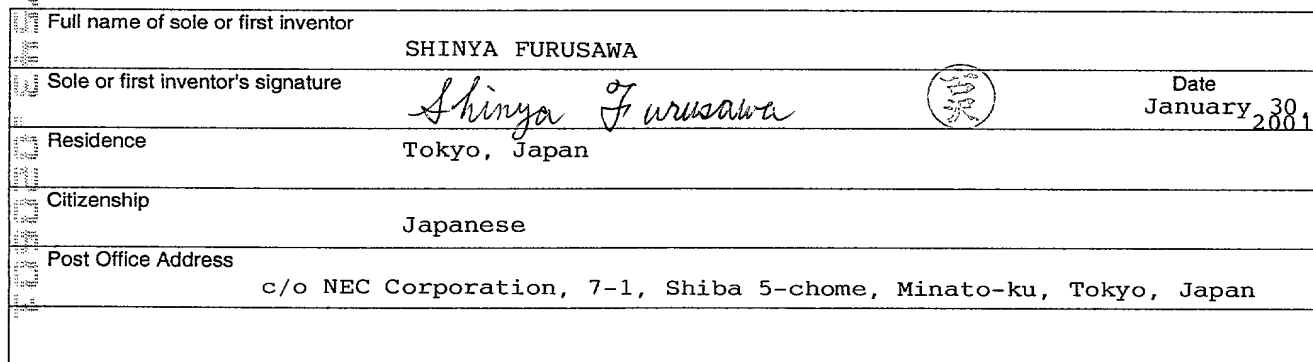 Full name of sole or first inventor
SHINYA FURUSAWA
Sole or first inventor's signature
Shinya Furusawa
Date
January 30,
2001
Residence
Tokyo, Japan
Citizenship
Japanese
Post Office Address
c/o NEC Corporation, 7-1, Shiba 5-chome, Minato-ku, Tokyo, Japan